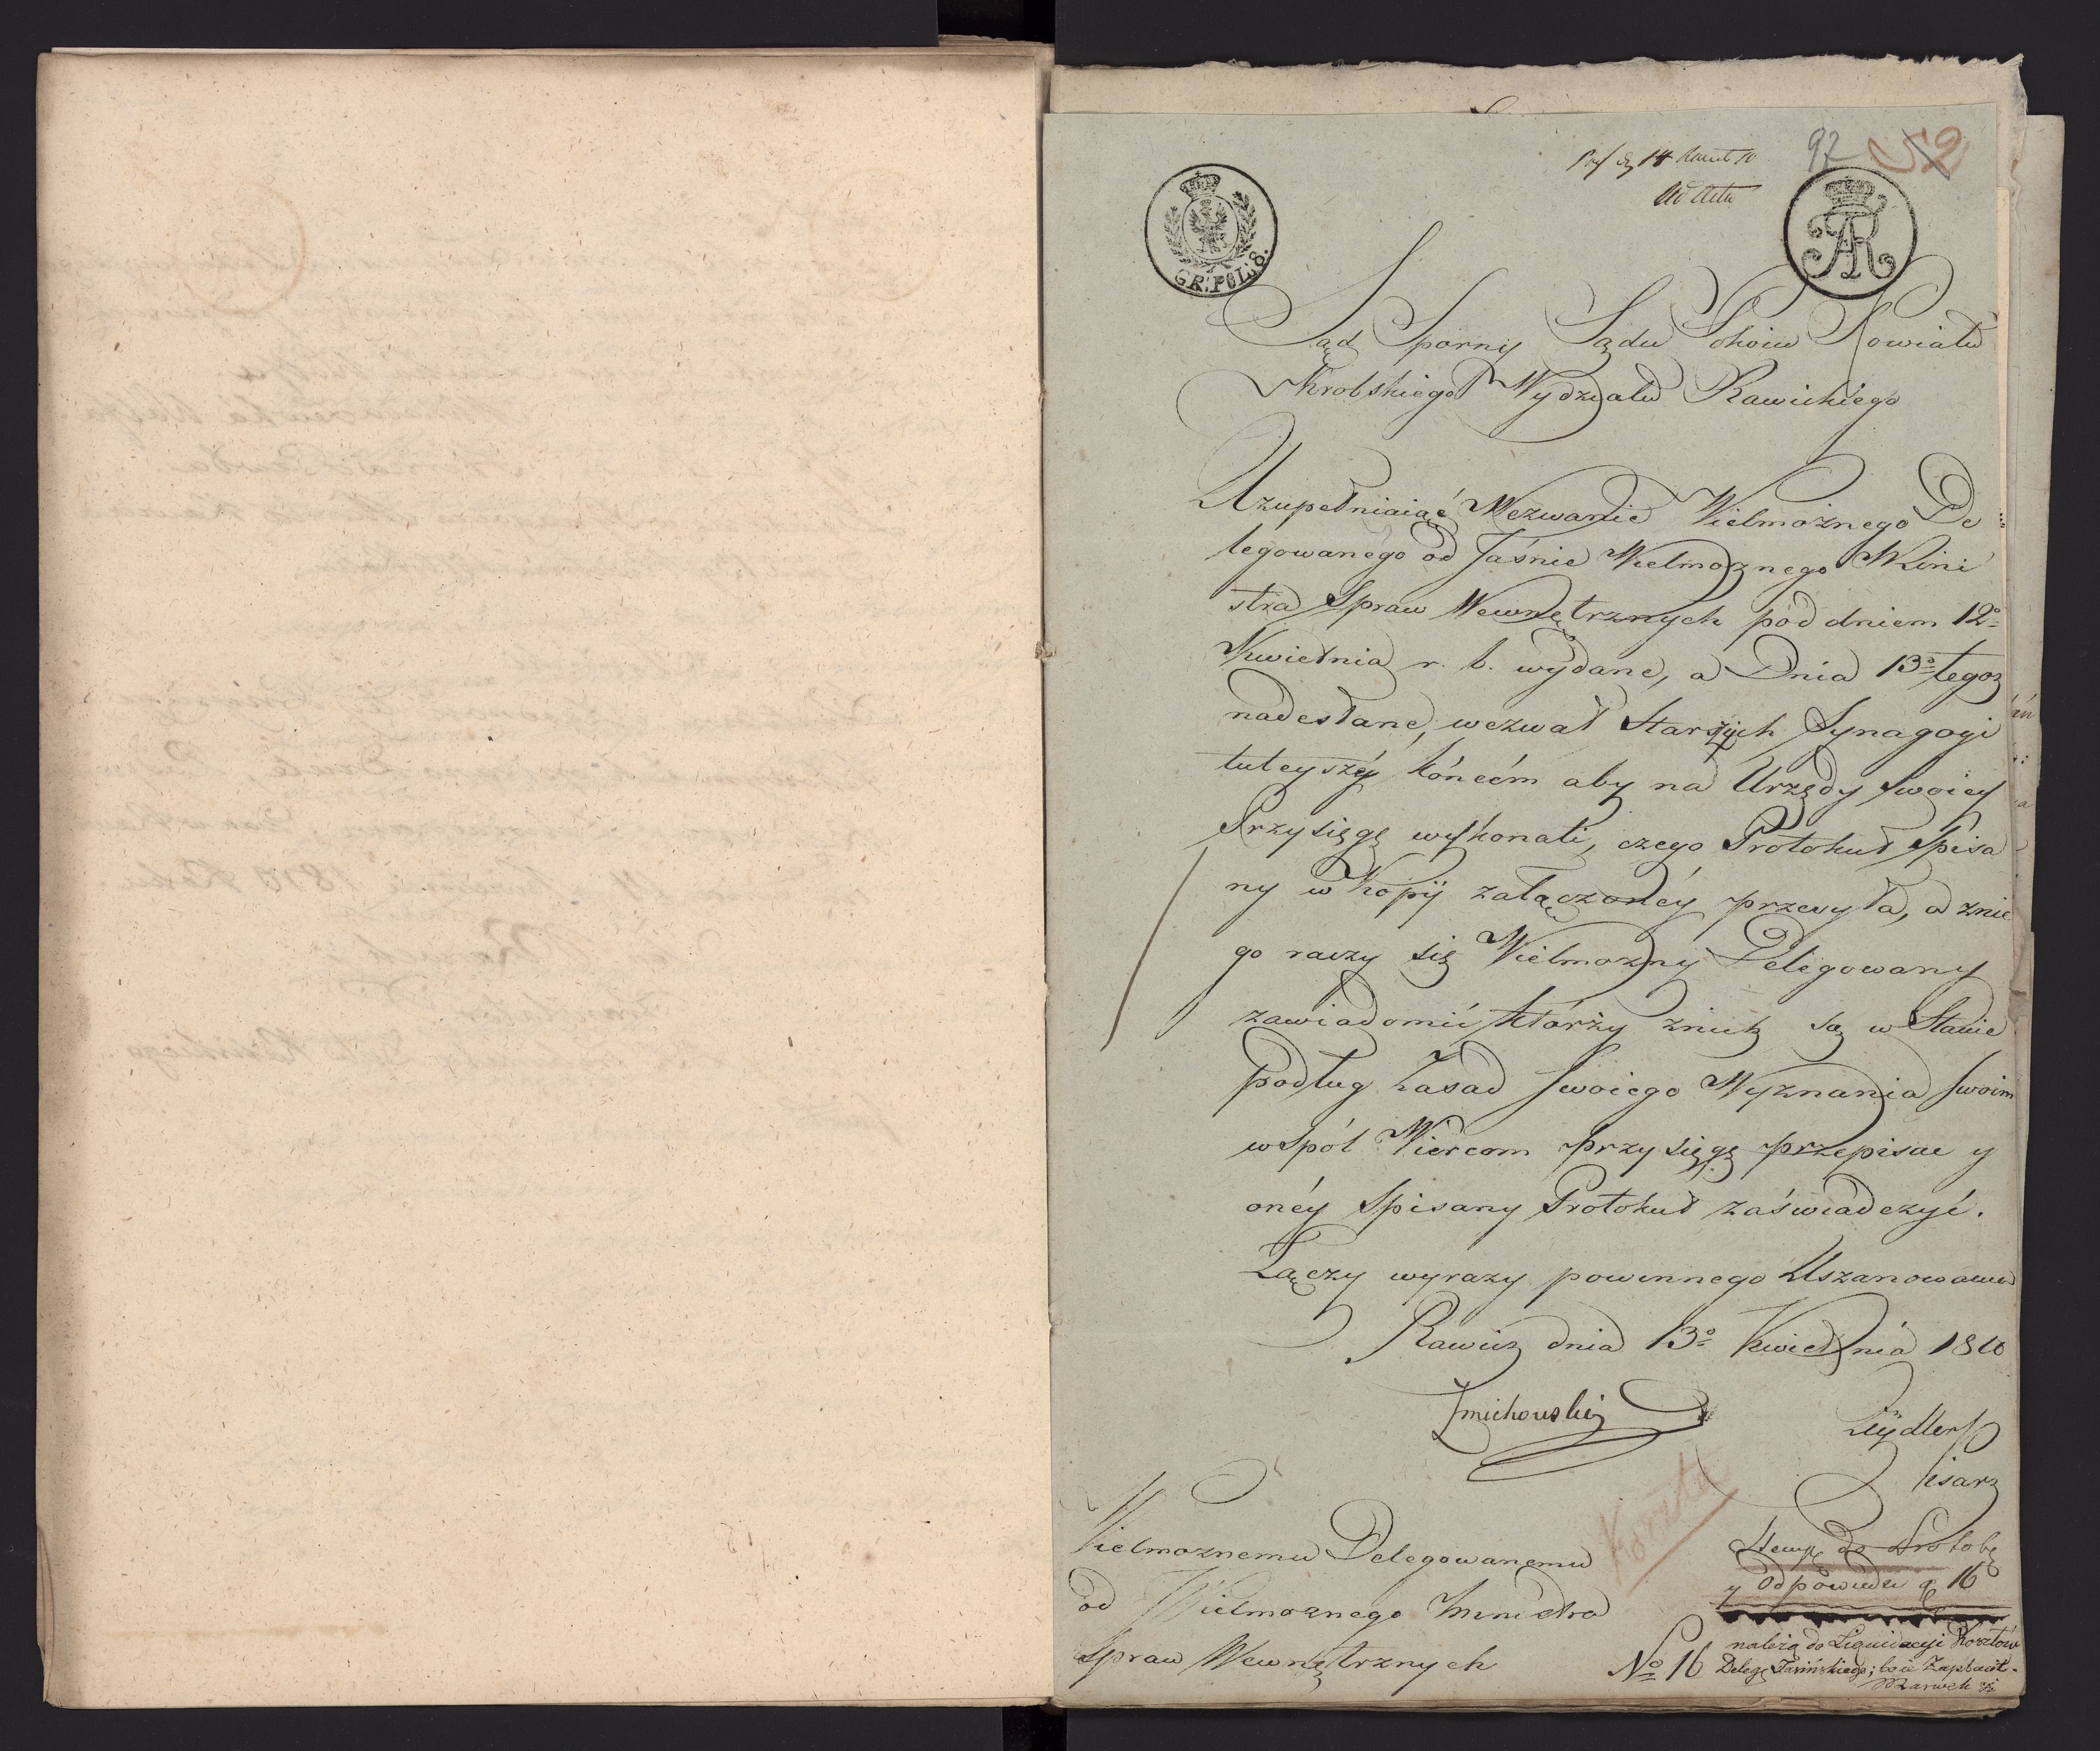 92 52
14
Ad Acta
GR: POL: 8.
AR
Sąd Sporny Sądu Pokoiu Powiatu
Krobskiego Wydziału Rawickiego
Uzupełniaiąć Wezwanie Wielmożnego De
legowanego od Jaśnie Wielmożnego Mini
stra Spraw Wewnętrznych pod dniem 12º
Kwietnia r. b. wydane, a Dnia 13º tegoż
nadesłane, wezwał Starszych Synagogi
tuteyszéy końcém aby na Urzędy swoiey
Przysięgę wykonali, czego Protokuł Spisa
ny w Kopij załączonéy przesyła, a znie
go raczy się Wielmożny Delegowany
zawiadomić którzy znich są w Stanie
podług Zasad swoiego Wyznania swoim
wspól Wiercom przysięgę przepisać y
onéy Spisany Protokuł zaświadczyć.
Łączy wyrazy powinnego Uszanowania
Rawicz dnia 13º Kwietnia 1810
Zmichowski
Zeydler
Pisarz
Wielmożnemu Delegowanemu
od Wielmożnego Ministra
Spraw Wewnętrznych
do
y Odpowiedzi 16
należą do Liquidacyi Kosztów
Nº 16 Deleg.